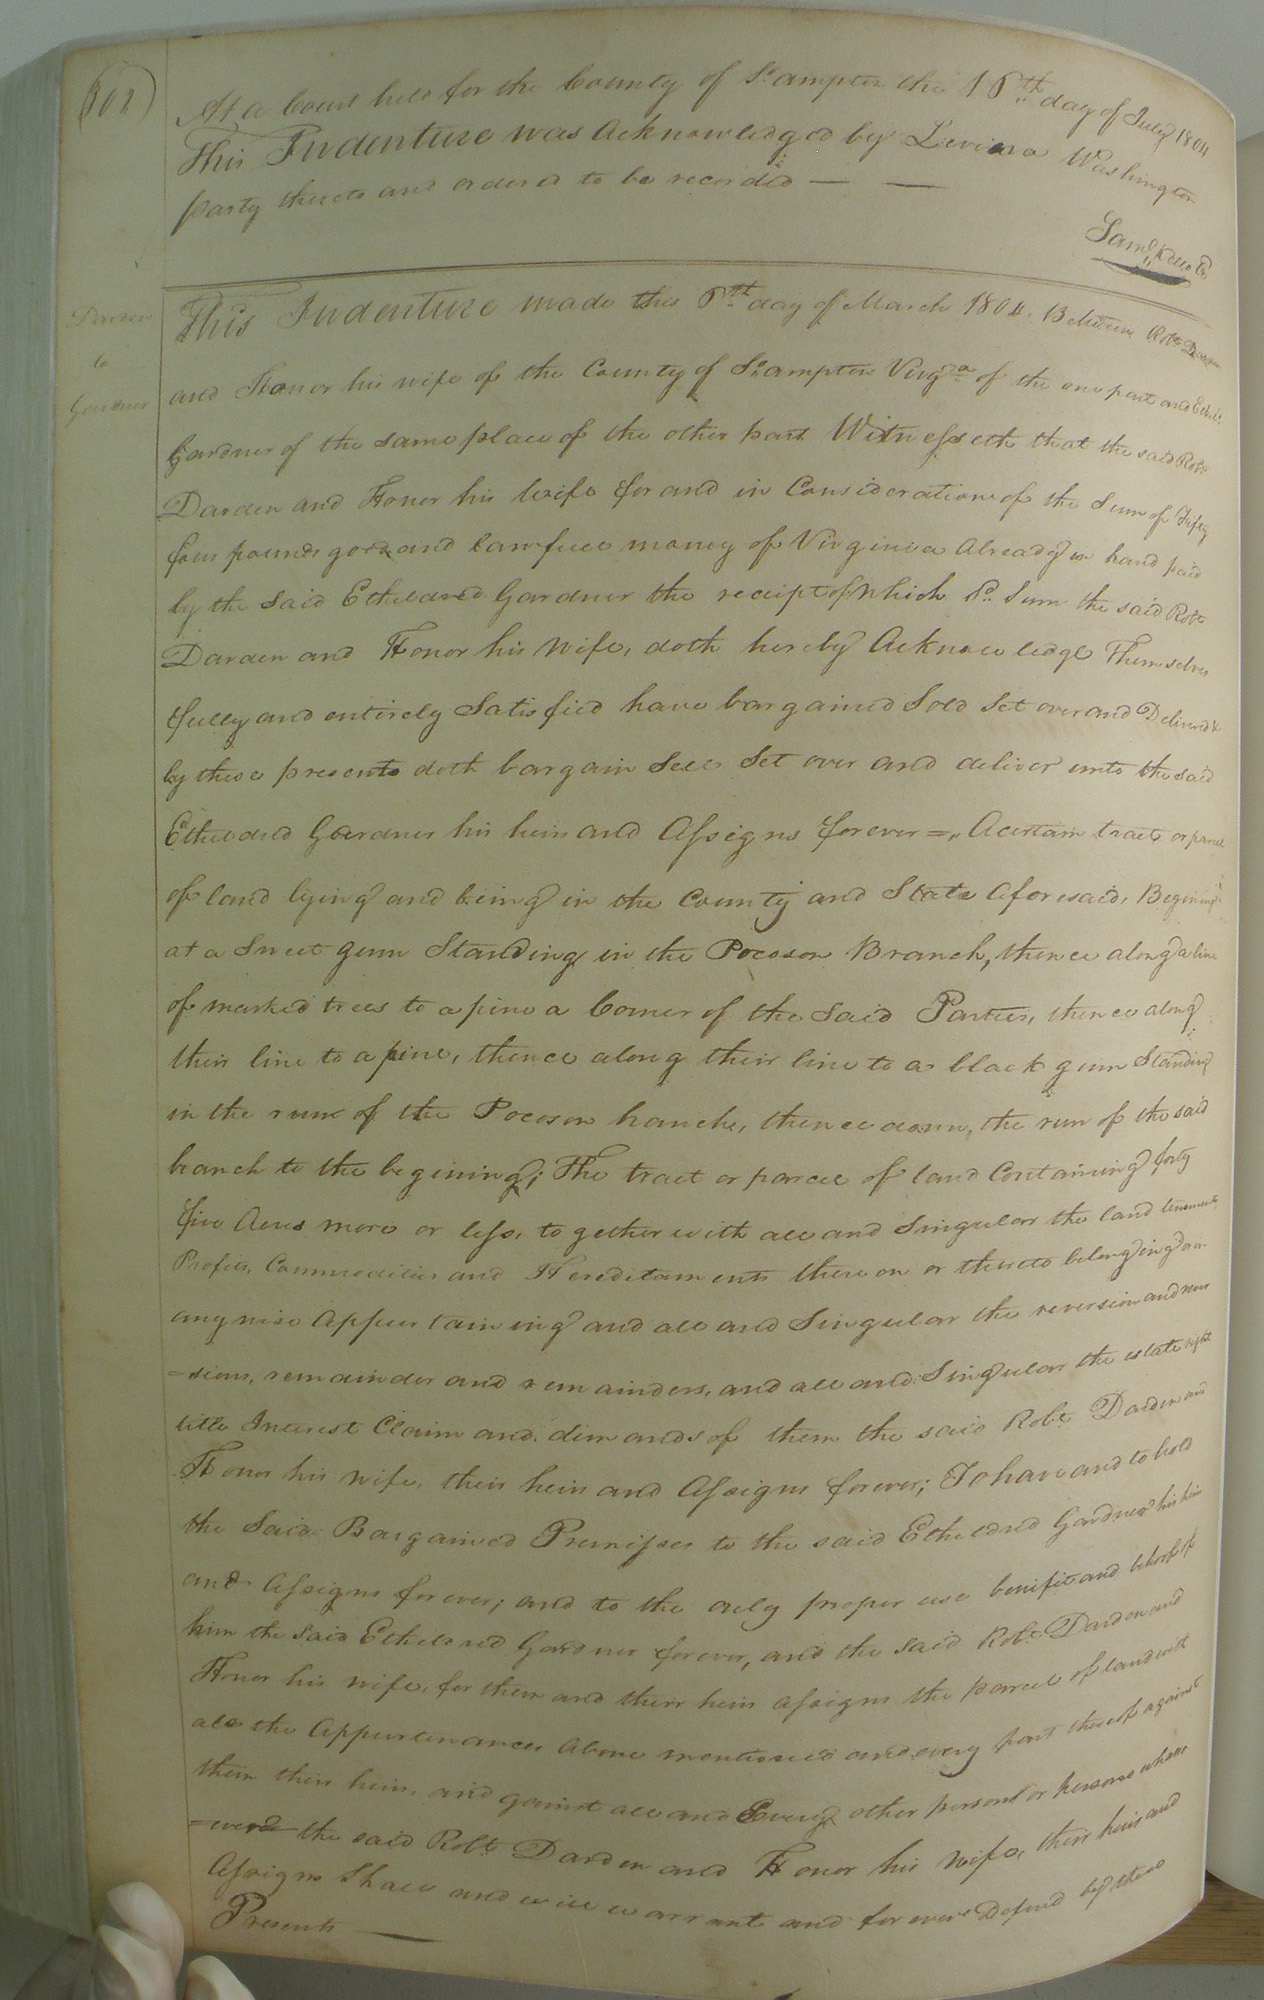 At a Court held for the County of S°.ampton the 16th day of July 1804
This Indenture was Acknowledged by Leviera Washington
party thereto and ordered to be recorded — —
Saml
Darden
to
Gardner
This Indenture made this 6th day of March 1804. Between Robt. Darden
and Honor his wife of the County of S°.ampton Virga. of the one part and Etheld.
Gardner of the same place of the other part Witnesseth that the said Robt.
Darden and Honor his Wife for and in Consideration of the Sum of Fifty
four pounds good and lawfull money of Virginia Already in hand paid
by the Said Etheldred Gardner the receipt of Which sd. Sum the said Robt.
Darden and Honor his Wife, doth hereby Acknowledge Themselves
fully and entirely Satisfied have bargained Sold Set over and Delivered &
by these presents doth bargain Sell Set over and deliver unto the said
Etheldred Gardner his heirs and Assigns forever =,, A certain tract or parcel
of land lying and being in the County and State Aforesaid, Begining
at a Sweet gum Standing in the Pocoson Branch, thence along a line
of marked trees to a pine a Corner of the Said Parties, thence along
their line to a pine, thence along their line to a black gum Standing
in the run of the Pocoson branch, thence down, the run of the said
branch to the begining; The tract or parcel of land Containing forty
five Acres more or less, together with all and Singular the land tenements
Profits, Commodities and Hereditaments thereon or thereto belonging or in
any wise Appurtaining and all and Singular the reversion and rever
=sions, remainder and remainders, and all and Singular the estate right
title Interest Claim and demands of them the said Robt. Darden and
Honor his wife, their heirs and Assigns forever; To have and to hold
the Said Bargained Premisses to the said Etheldred Gardner his heirs
and Assigns forever; and to the only proper use benifit and behoof of
him the Said Etheldred Gardner forever, and the Said Robt. Darden and
Honor his wife, for them and their heirs assigns the parcel of land with
all the Appurtenances above mentioned and every part thereof against
them their heirs, and gainst all and Every other person or persons whom
=ever the said Robt. Darden and Honor his Wife, their heirs and
Assigns Shall and will warrant and forever Defend by these
Presents —